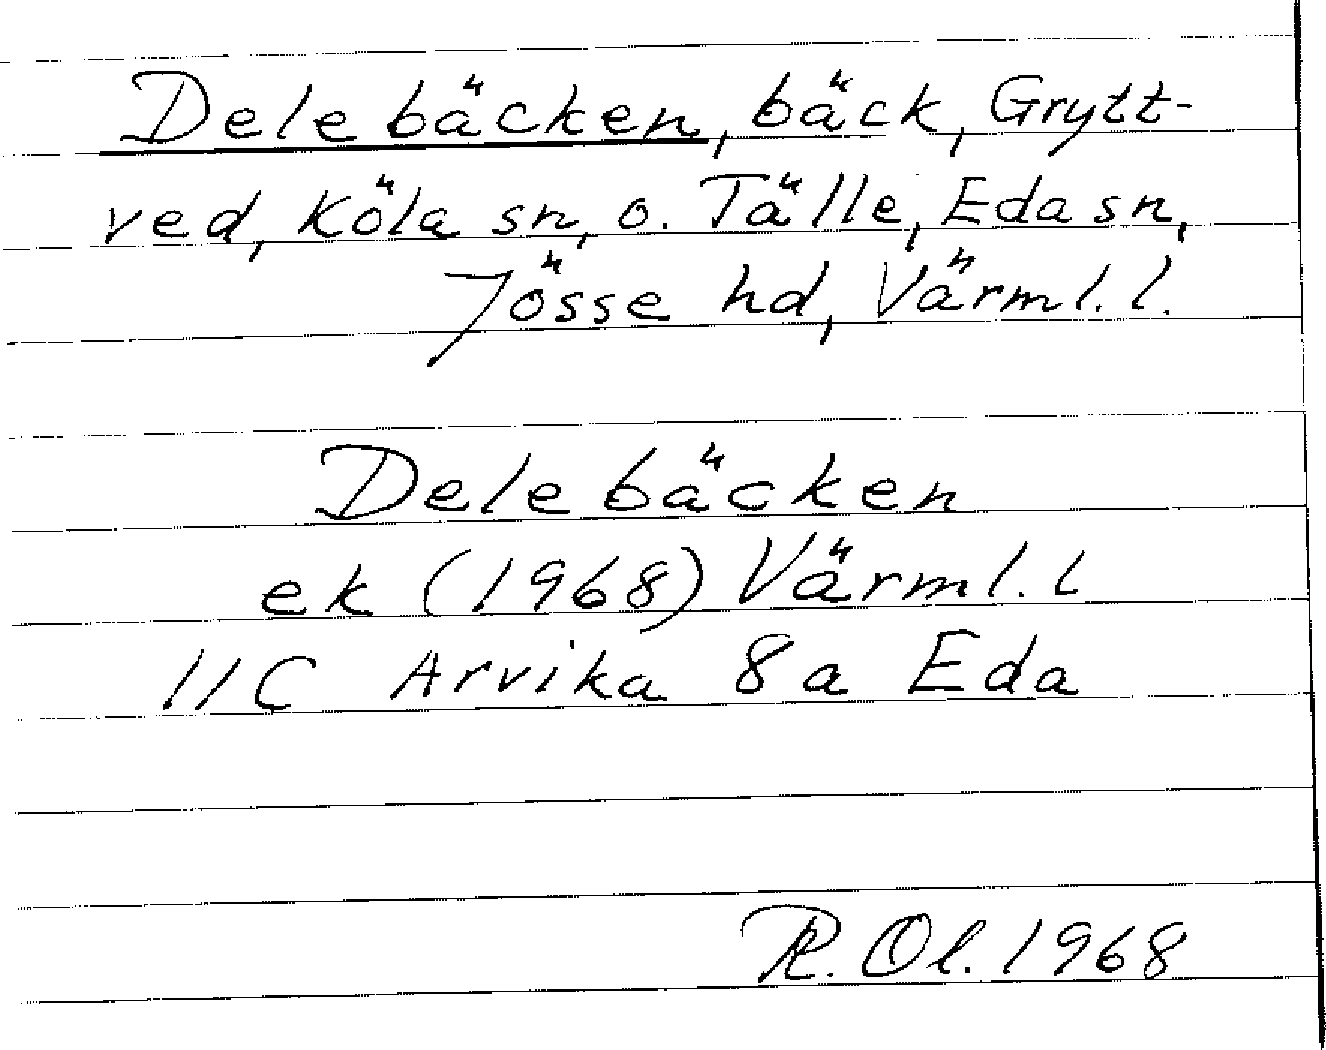 Delebäcken, bäck, Grytt-
ved, Köla sn, o. Tälle, Eda sn,
Jösse hd, Värml. l.
Delebäcken
ek (1968) Värml. l
11C Arvika 8a Eda
R. Ol. 1968